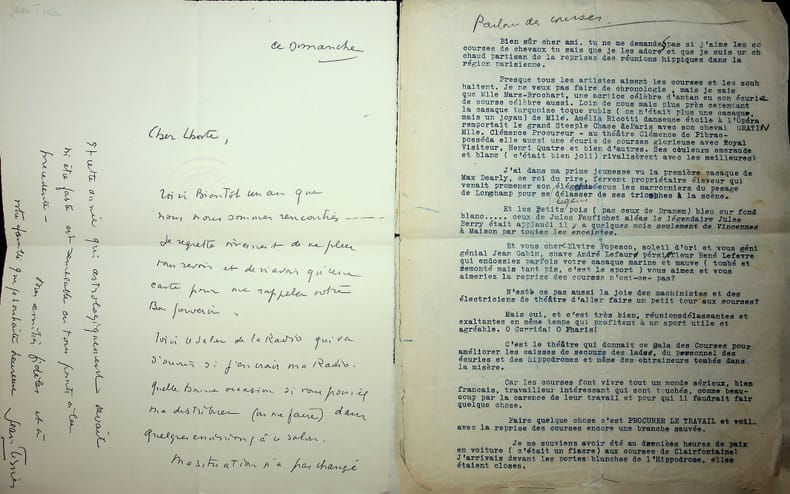 Jean Tissier
ce Dimanche
Cher Lhoste,
Voici Bientôt un an que
nous nous sommes rencontrés
Je regrette vivement de ne plus
vous revoir et de n'avoir qu'une
carte pour me rappeler votre
Bon Souvenir.
Voici le Salon de la Radio qui va
s'ouvrir si j'en crois ma Radio.
Quelle Bonne occasion si vous pouviez
me distribuer dans
quelques émissions, à ce salon.
Ma situation n'a pas changé
Et cette année qui astrologiquement devait
m'être faste est semblable en tous points à la
précédente -
Mes amitiés fidèles et à
votre famille que je souhaite heureuse
Jean Tissier
Parlons des courses.
Bien sûr cher ami, tu ne me demandes pas si j'aime les co
courses de chevaux tu sais que je les adore et que je suis un ch
chaud partisan de la reprises des réunions hippiques dans la
région parisienne.
Presque tous les artistes aiment les courses et les souh
haitent. Je ne veux pas faire de chronologie, mais je sais
que Mlle Mars-Brochart, une acrtice célèbre d'antan eu son écurie
de course célèbre aussi. Loin de nous mais plus près cependant
la casaque turquoise toque rubis ( ce n'était plus une casaque,
mais un joyau) de Mlle. Amélia Ricotti danseuse étoile à l'Opéra
remportait le grand Steeple Chase deParis avec son cheval GRATIN
Mlle. Clémence Procureur - au théâtre Clémence de Pibrac-
posséda elle aussi une écurie de courses glorieuse avec Royal
Visiteur, Henri Quatre et bien d'autres. Ses couleurs emeraude
et blanc ( c'était bien joli) rivalisèrent avec les meilleures!
J'ai dans ma prime jeunesse vu la première casaque de
Max Dearly, ce roi du rire, fervent propriétaire éleveur qui
venait promener son élégance sous les marronniers du pesage
de Longchamp pour se délasser de ses triomphes à la scène.
Et les Petits pois ( pas ceux de Dranem) bleu sur fond
blanc..... ceux de Jules Pautichet alàes le légendaire Jules
Berry était applaudi il y a quelques mois seulement de Vincennes
à Maison par toutes les enceintes.
Et vous cher Elvire Popesco, soleil d'or! et vous géni
génial Jean Gabin, suave André Lefaur persifleur René Lefevre
qui endossiez parfois votre casaque marine et mauve ( tombé et
remonté mais tant pis, c'est le sport ) vous aimez et vous
aimeriez la reprise des courses n'est-ce- pas?
N'est ce pas aussi la joie des machinistes et des
électriciens de théâtre d'aller faire un petit tour aux courses?
Mais oui, et c'est très bien, réunionsdélassantes et
exaltantes en même temps qui profitent à un sport utile et
agréable. O Corrida! O Pharis!
C'est le théâtre qui donnait ce Gala des Courses pour
améliorer les caisses de secours des lads, du personnel des
écuries et des hippodromes et même des entraineurs tombés dans
la misère.
Car les courses font vivre tout un monde sérieux, bien
français, travailleur intéressant qui sont touchés, comme beau-
coup par la carence de leur travail et pour qui il faudrait faire
quelque chose.
Faire quelque chose c'est PROCURER LE TRAVAIL et voil
avec la reprise des courses encore une branche sauvée.
Je me souviens avoir été au dernières heures de paix
en voiture ( c'était un fiacre) aux courses de Clairfontaine!
J'arrivais devant les portes blanches de l'Hippodrome, elles
étaient closes.